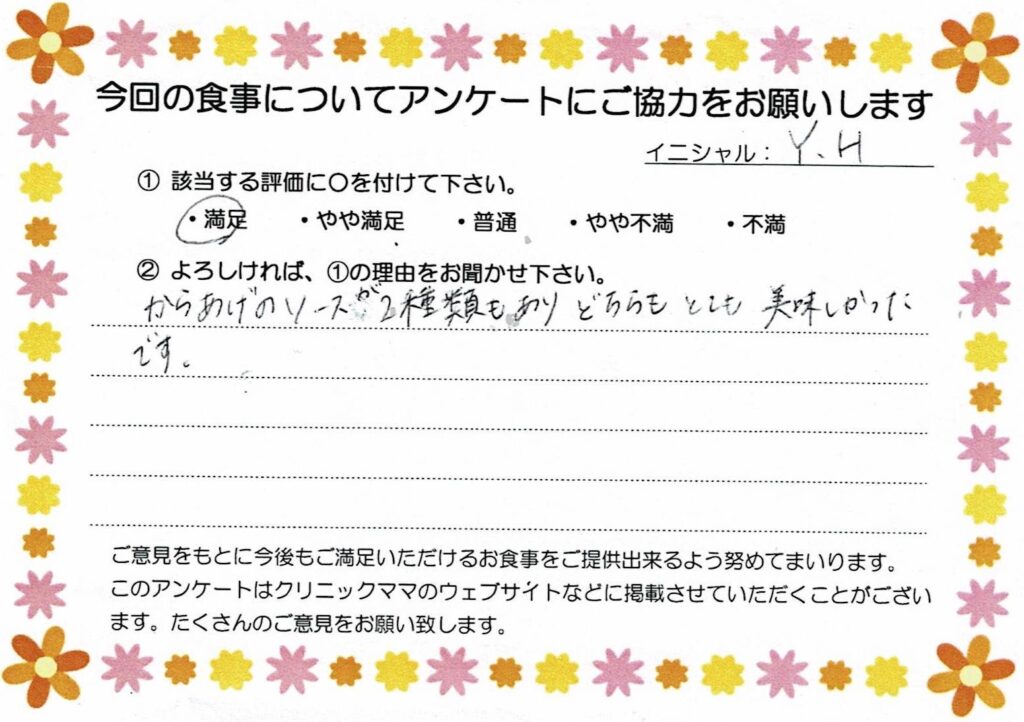 今回の食事についてアンケートにご協力をお願いします
イニシャル： Y、H
① 該当する評価に〇を付けて下さい。
・満足 ・やや満足 ・普通 ・やや不満 ・不満
② よろしければ、①の理由をお聞かせ下さい。
からあげのソースが2種類もあり どちらも とても 美味しかった
です。
ご意見をもとに今後もご満足いただけるお食事をご提供出来るよう努めてまいります。
このアンケートはクリニックママのウェブサイトなどに掲載させていただくことがござい
ます。たくさんのご意見をお願い致します。